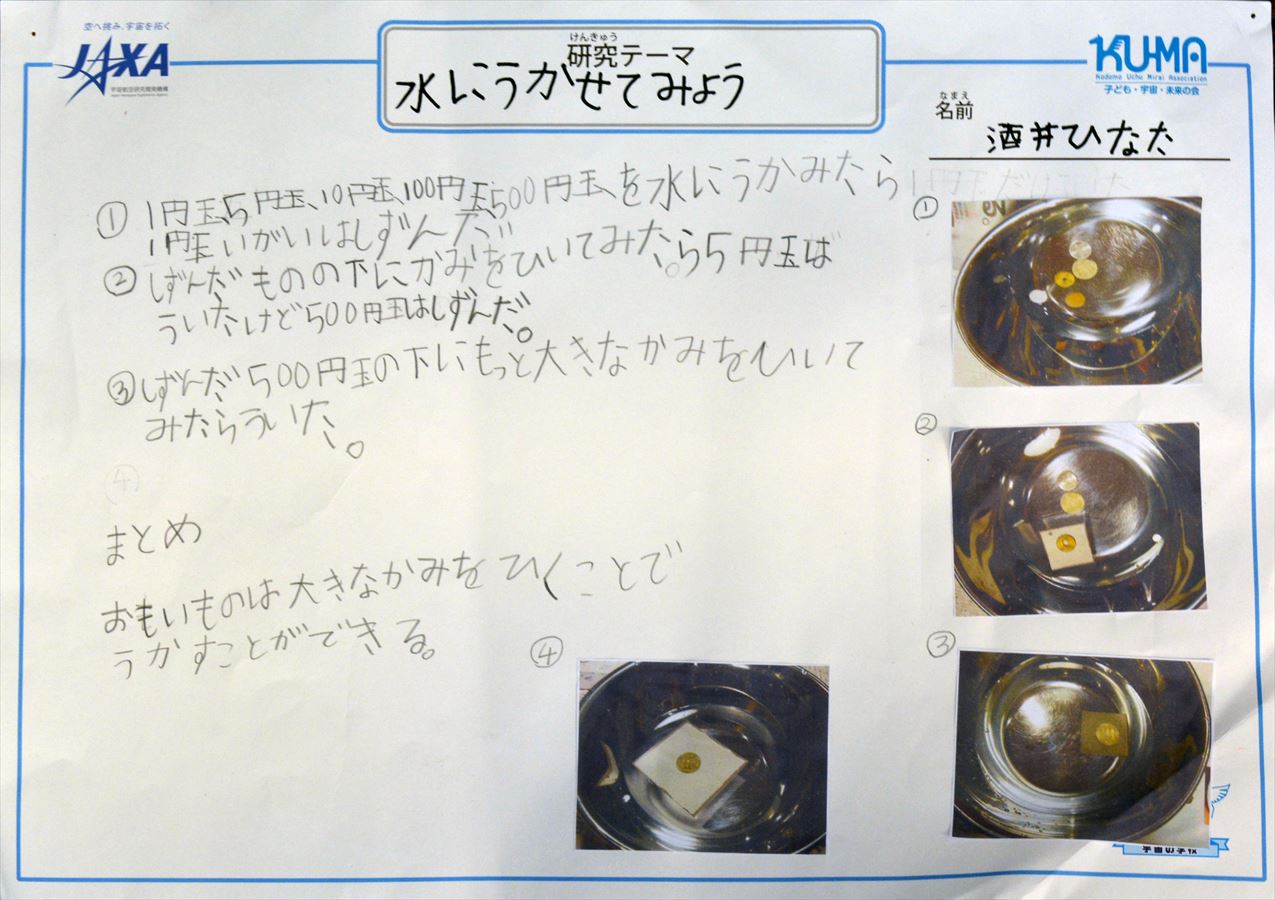 空へ挑み、宇宙を拓く
JAXA
宇宙航空研究開発機構
けんきゅう
研究テーマ
水にうかせてみよう
KU-MA
Kodomo Uchu Mirai Association
子ども・宇宙・未来の会
なまえ
名前
酒井ひなた
① 1円玉、5円玉、10円玉、100円玉、500円玉、を水にうかみたら
1円玉いがいはしずんだ。
② しずんだものの下にかみをひいてみた。ら5円玉は
ういたけど500円玉はしずんだ。
③ しずんだ500円玉の下にもっと大きなかみをひいて
みたらういた。
④
まとめ
おもいものは大きなかみをひくことで
うかすことができる。
①
②
③
④
宇宙の学校